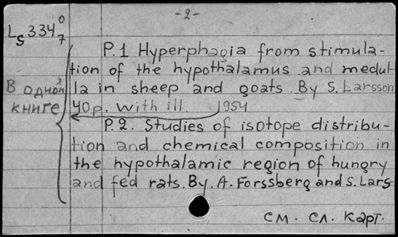 -2-
Ls 334 0/7
P.1 Hyperphagia from stimula-
tion of the hypothalamus and medul-
la in sheep and goats. By S. Larsson
40p. with ill. 1954
P.2. Studies of isotope distribu-
tion and chemical composition in
the hypothalamic region of hungry
and fed rats. By. A. Forssberg and S. Lars-
В одной
книге
см. сл. карт.